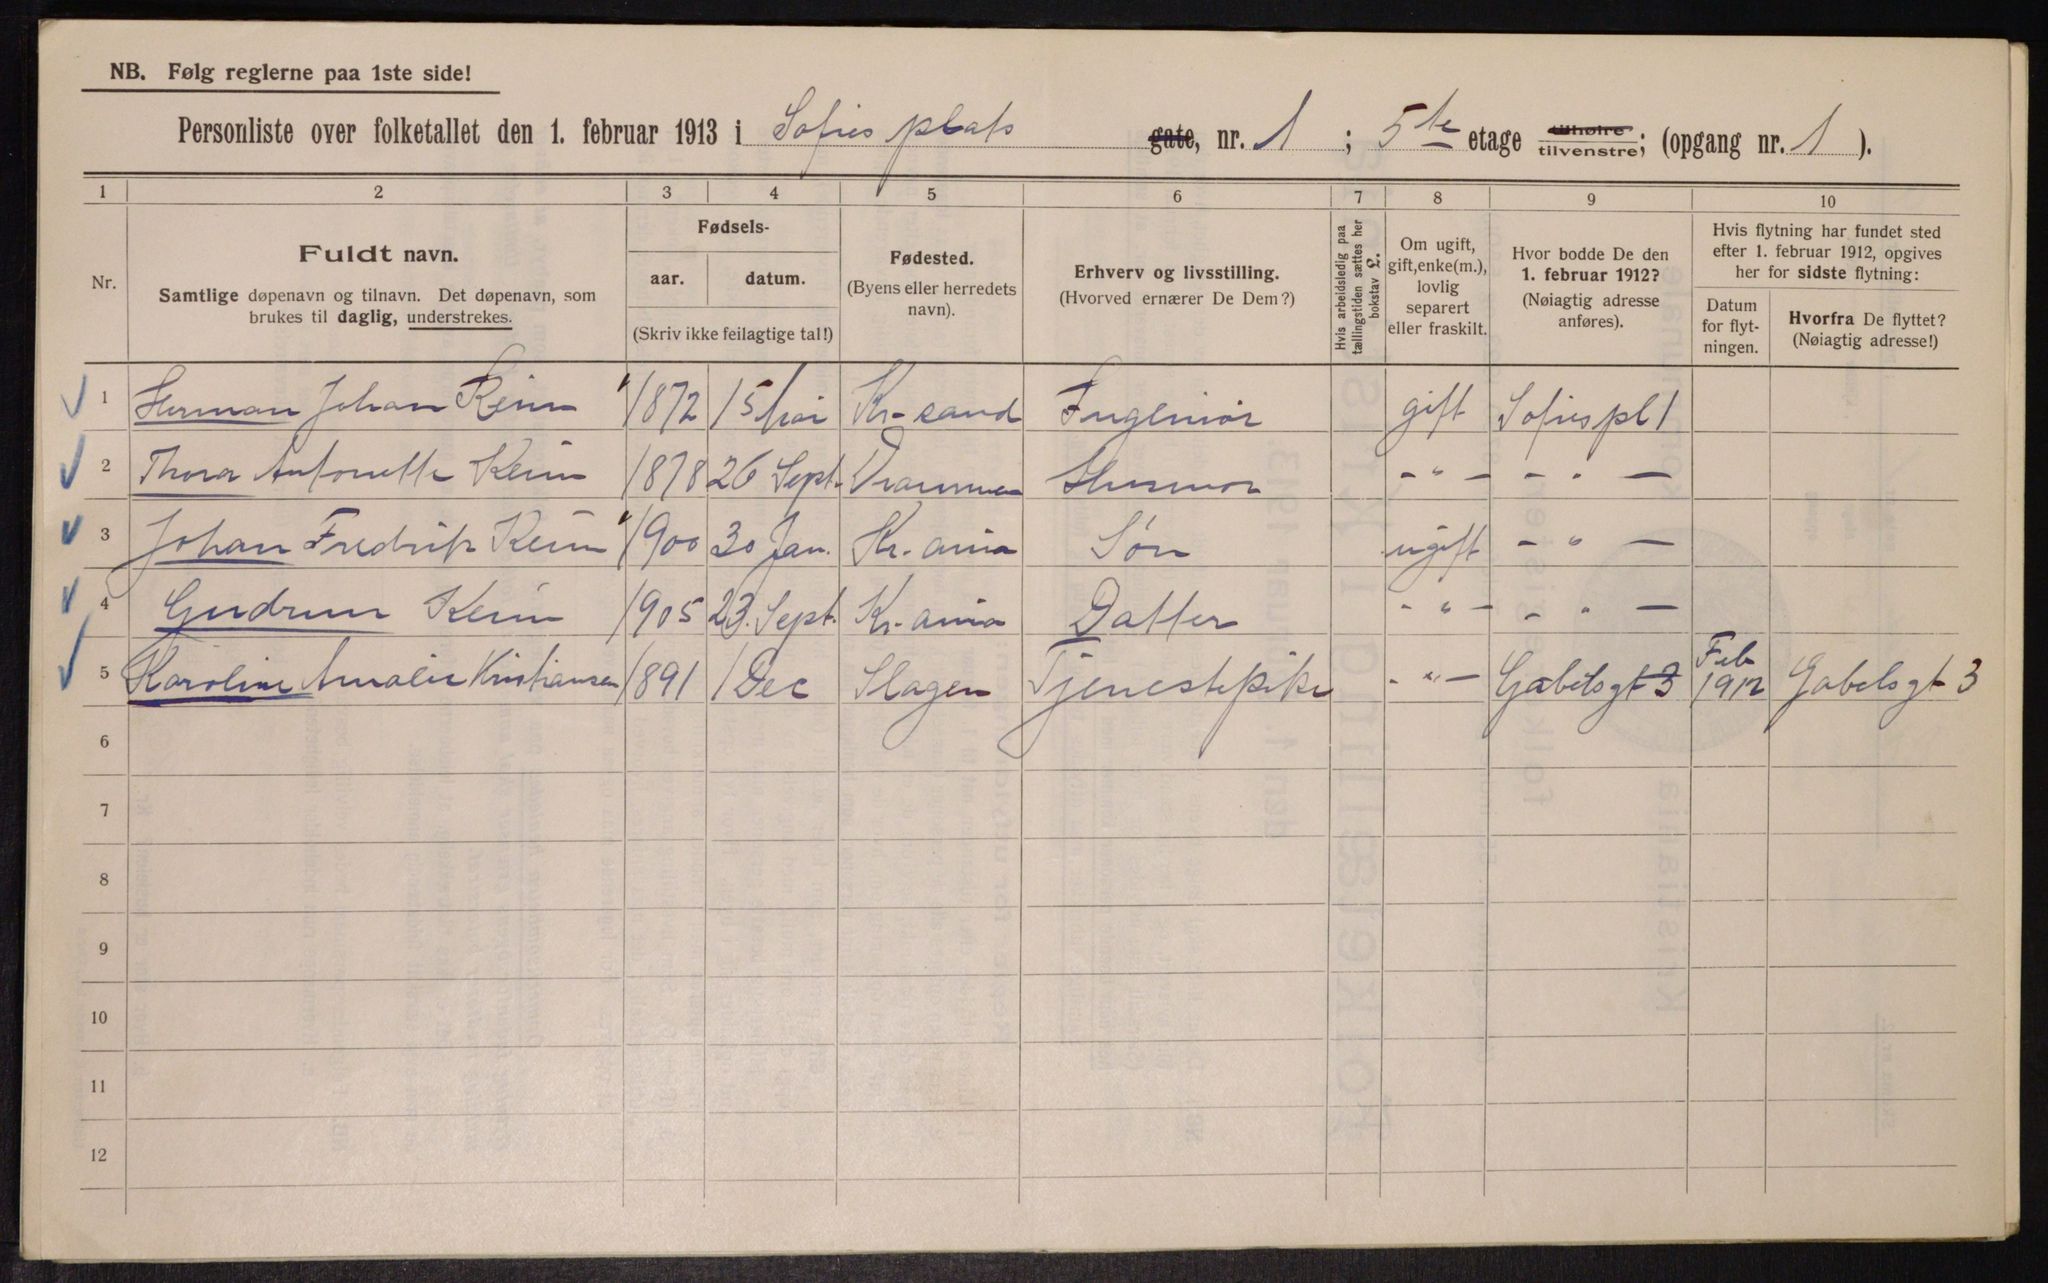 NB. Følg reglerne paa 1ste side!
Personliste over folketallet den 1. februar 1913 i Sofies plats gate, nr. 1 ; 5te etage tilhøire tilvenstre; (opgang nr. 1 ).
1 2 3 4 5 6 7 8 9 10
Nr.
Fuldt navn.
Samtlige døpenavn og tilnavn. Det døpenavn, som
brukes til daglig, understrekes.
Fødsels-
aar. datum.
(Skriv ikke feilagtige tal!)
Fødested.
(Byens eller herredets
navn).
Erhverv og livsstilling.
(Hvorved ernærer De Dem?)
Hvis arbeidsledig paa
tællingstiden sættes her
bokstav L.
Om ugift,
gift, enke(m.),
lovlig
separert
eller fraskilt.
Hvor bodde De den
1. februar 1912?
(Nøiagtig adresse
anføres).
Hvis flytning har fundet sted
efter 1. februar 1912, opgives
her for sidste flytning:
Datum
for flyt-
ningen.
Hvorfra De flyttet?
(Nøiagtig adresse!)
1 Herman Johan Keim 1872 15 Mai Kr-sand Ingeniør gift Sofies pl 1
2 Thora Antonette Keim 1878 26 Sept. Drammen Husmor - " - - " -
3 Johan Fredrik Keim 1900 30 Jan. Kr. ania Søn ugift - " -
4 Gudrun Keim 1905 23. Sept. Kr. ania Datter - " - - " -
5 Karoline Amalie Kristiansen 1891 1 Dec Slagen Tjenestepike - " - Gabelsgt 3 Feb 1912 Gabelsgt 3
6
7
8
9
10
11
12